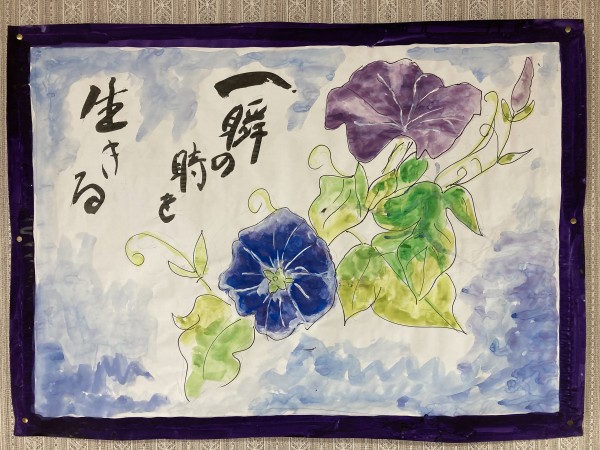 一瞬の
時を
生きる